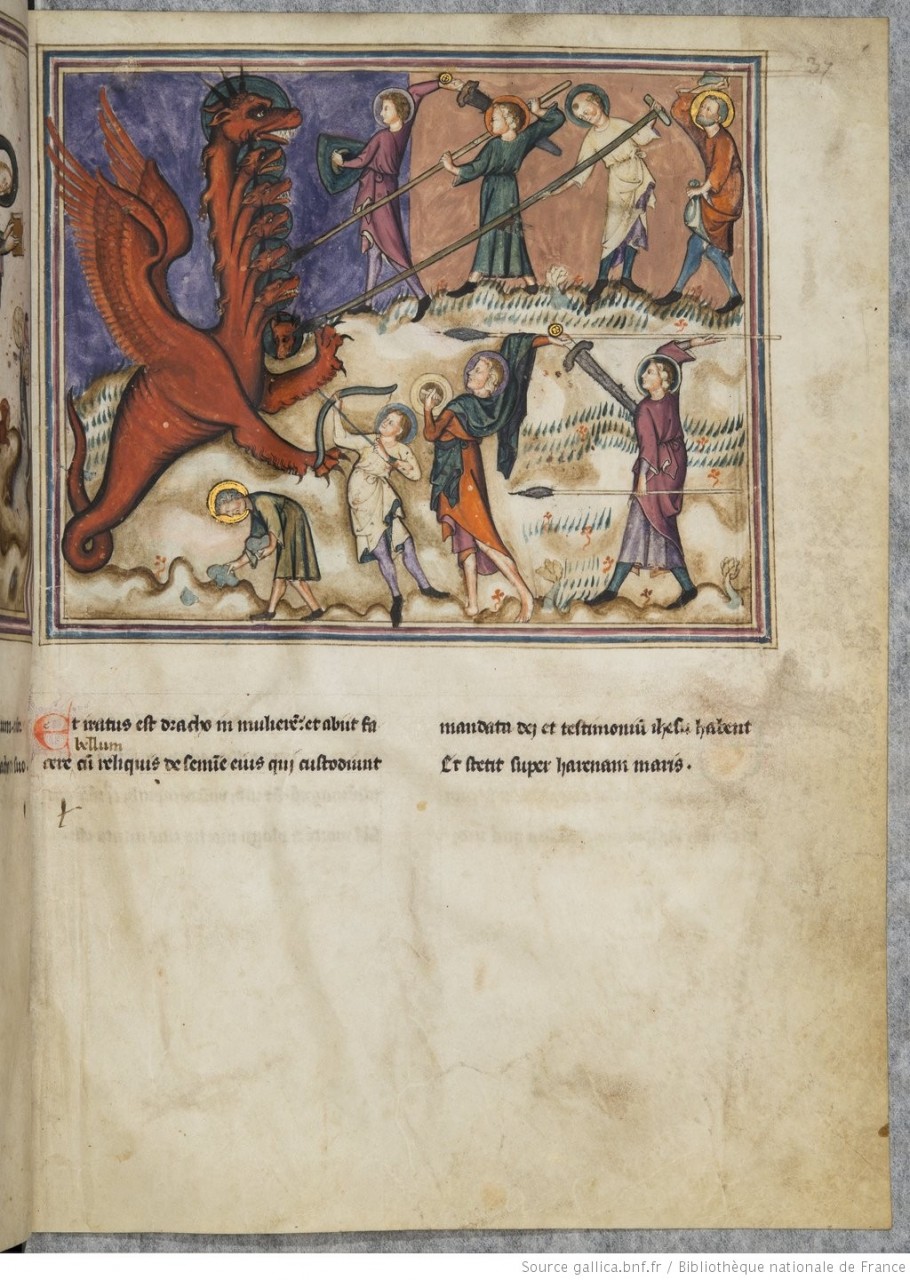 37
Et iratus est dracho in mulierē: et abiit fa
bellum
cere cū reliquis de semīe eius qui custodiunt
mandata dei et testimoniū ihesu habent
Et stetit super harenam maris.
Source gallica.bnf.fr / Bibliothèque nationale de France